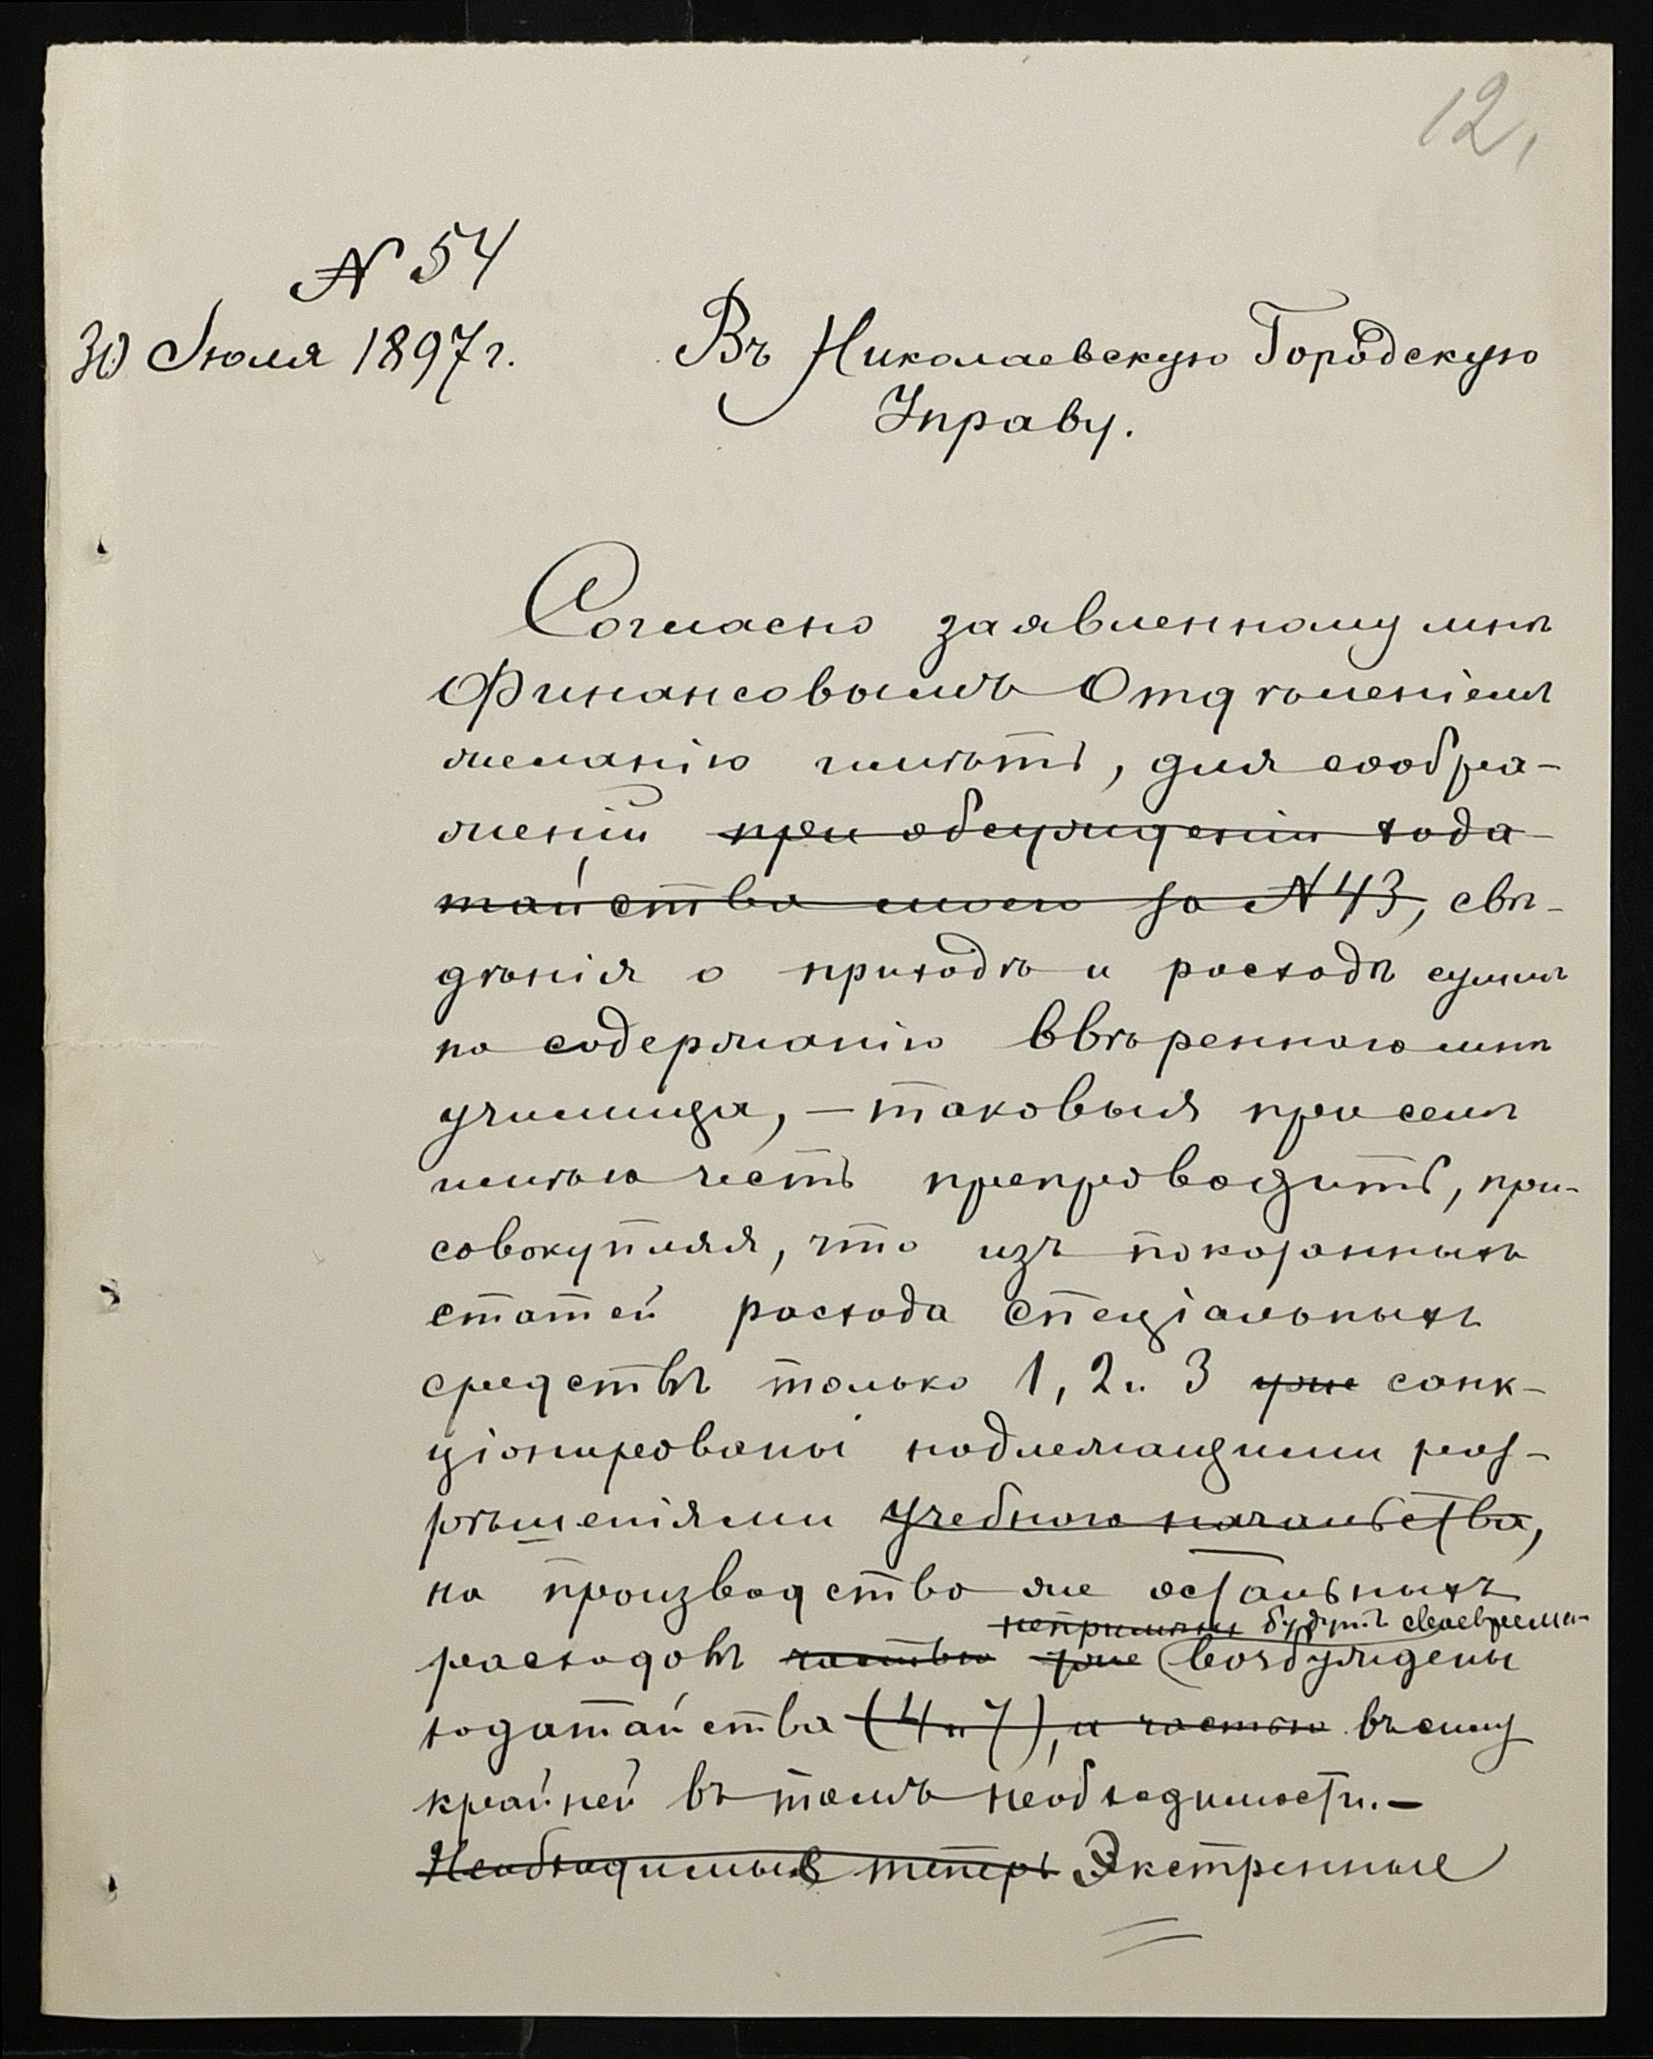 12,
№ 54
30 Іюля 1897 г.
Въ Николаевскую Городскую
Управу.
Согласно заявленному мнѣ
Финансовымъ Отдѣленіемъ
желанію имѣть, для сообра-
женій при обсужденіи хода-
тайства моего за № 43, свѣ-
дѣнія о приходѣ и расходѣ суммъ
по содержанію ввѣреннаго мнѣ
училища, – таковыя при семъ
имѣю честь препроводить, при-
совокупляя, что изъ показанныхъ
статей расхода спеціальныхъ
средствъ только 1, 2 и 3 уже санк-
ціонированы надлежащими раз-
рѣшеніями учебнаго начальства,
на производство же остальныхъ
непремѣнно будутъ своевремен-
расходовъ частью уже возбуждены
ходатайства (4 и 7), и частью въ силу
крайней въ томъ необходимости. –
Необходимыя теперь Экстренные